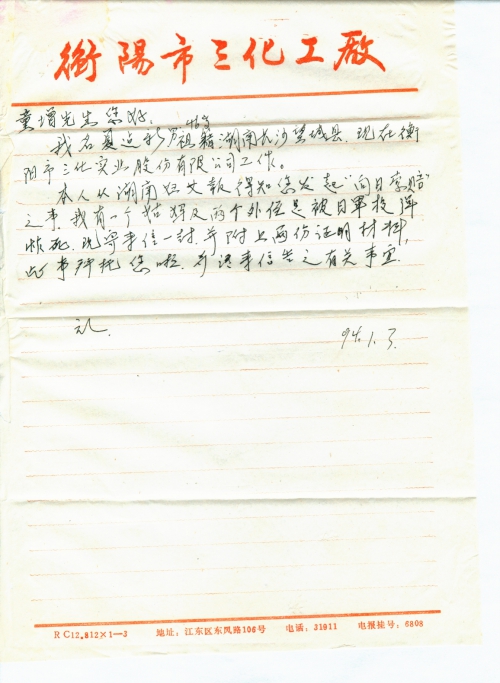 衡陽市三化工厰
童增先生您好:
我名夏运 46岁 祖籍湖南长沙望城县,现在衡
阳市三化实业股份有限公司工作。
本人从湖南妇女报得知您发起"向日索赔"
之事,我有一个姑 及两个外侄是被日军投弹
炸死,现寄来信一封,并附上两份证明材料,
此事拜托您啦。并请来信告之有关事宜.
礼.
94.1.3.
RC12.812×1—3 地址:江东区东风路106号 电话:31911 电报挂号:6808